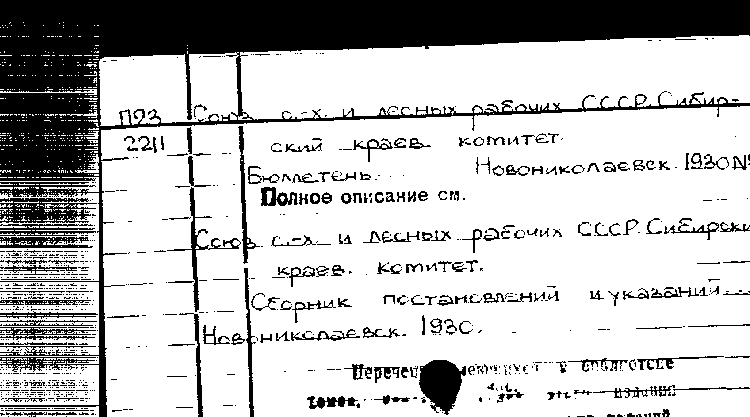 П23 Союз с.-х. и лесных рабочих СССР. Сибир-
2211 ский краев. комитет.
Бюллетень. Новониколаевск. 1930 №
Полное описание см.
Союз с.-х. и лесных рабочих СССР. Сибирски
краев. комитет.
Сборник постановлений и указаний
Новониколаевск. 1930.
в библиотеке
изданий